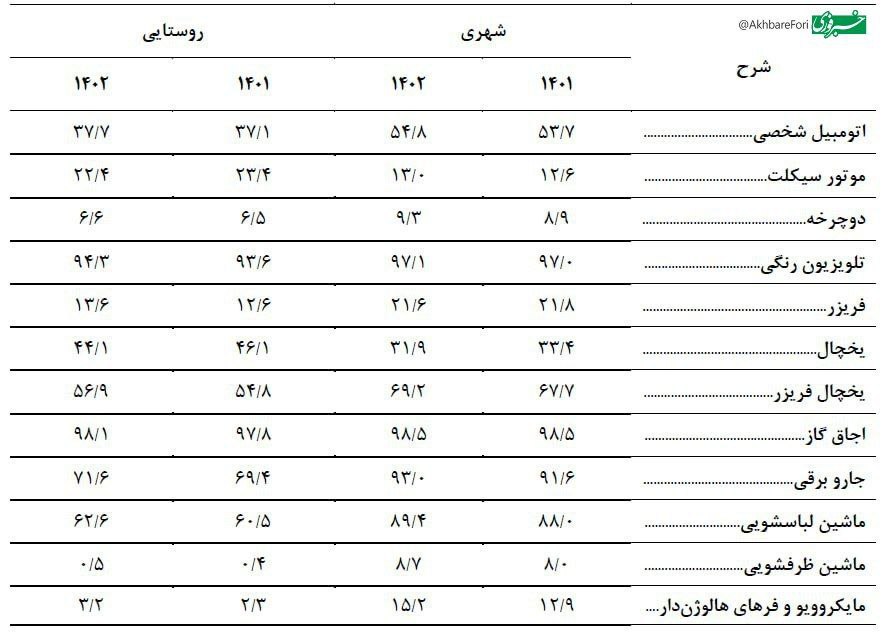 خبرفوری @AkhbareFori
شرح شهری روستایی
۱۴۰۱ ۱۴۰۲ ۱۴۰۱ ۱۴۰۲
اتومبیل شخصی................................ ۵۳/۷ ۵۴/۸ ۳۷/۱ ۳۷/۷
موتور سیکلت.................................... ۱۲/۶ ۱۳/۰ ۲۳/۴ ۲۲/۴
دوچرخه................................................ ۸/۹ ۹/۳ ۶/۵ ۶/۶
تلویزیون رنگی.................................. ۹۷/۰ ۹۷/۱ ۹۳/۶ ۹۴/۳
فریزر...................................................... ۲۱/۸ ۲۱/۶ ۱۲/۶ ۱۳/۶
یخچال................................................... ۳۳/۴ ۳۱/۹ ۴۶/۱ ۴۴/۱
یخچال فریزر...................................... ۶۷/۷ ۶۹/۲ ۵۴/۸ ۵۶/۹
اجاق گاز............................................... ۹۸/۵ ۹۸/۵ ۹۷/۸ ۹۸/۱
جارو برقی............................................ ۹۱/۶ ۹۳/۰ ۶۹/۴ ۷۱/۶
ماشین لباسشویی............................ ۸۸/۰ ۸۹/۴ ۶۰/۵ ۶۲/۶
ماشین ظرفشویی............................. ۸/۰ ۸/۷ ۰/۴ ۰/۵
مایکروویو و فرهای هالوژن‌دار.... ۱۲/۹ ۱۵/۲ ۲/۳ ۳/۲